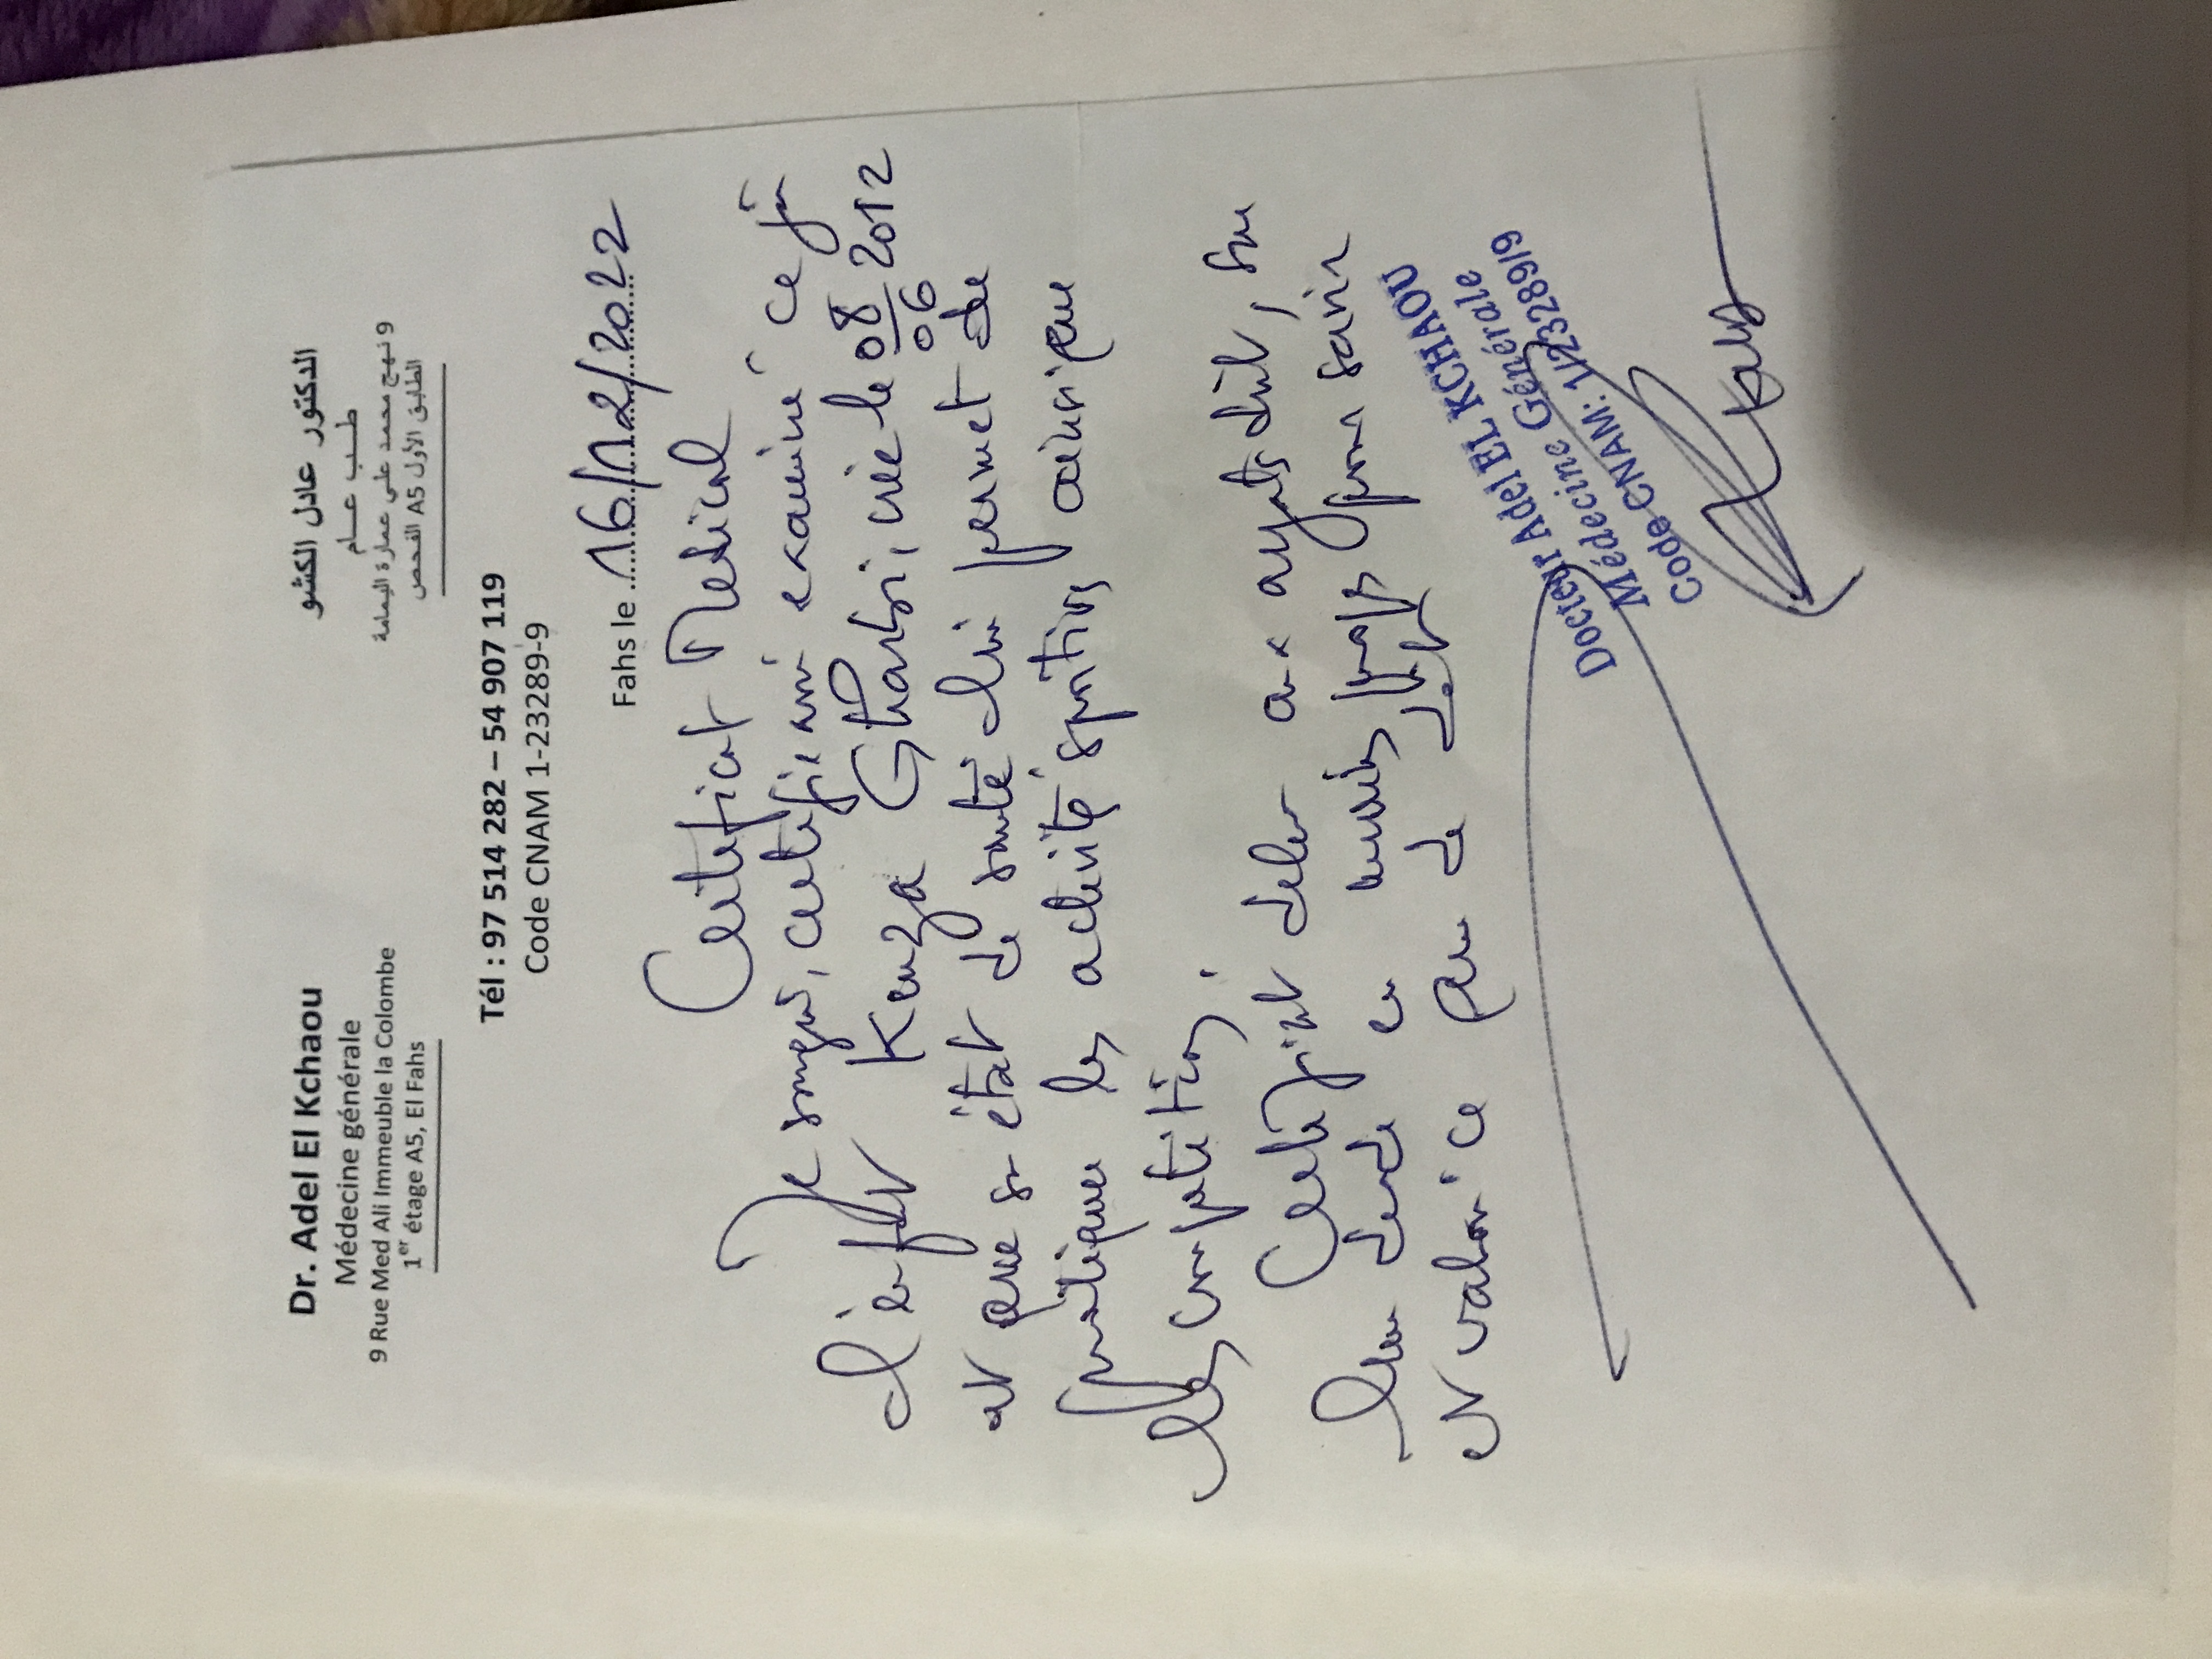 Dr. Adel El Kchaou
Médecine générale
9 Rue Med Ali Immeuble la Colombe
1er étage A5, El Fahs
الدكتور عادل الكشو
طب عام
9 نهج محمد علي عمارة اليمامة
الطابق الأول A5 الفحص
Tél : 97 514 282 – 54 907 119
Code CNAM 1-23289-9
Fahs le 16/12/2022
Certificat Medical
Je soussigné, certifie avoir examiné ce jour
l'enfant Kenza Gharbi, née le 08/06 2012
et que son état de santé lui permet de
pratiquer les activités sportives ainsi que
les compétitions.
Certificat délivré aux ayants droit, sur
leur demande en mains propres pour servir
et valoir ce que de droit
Docteur Adel EL KCHAOU
Médecine Générale
Code CNAM: 1/23289/9